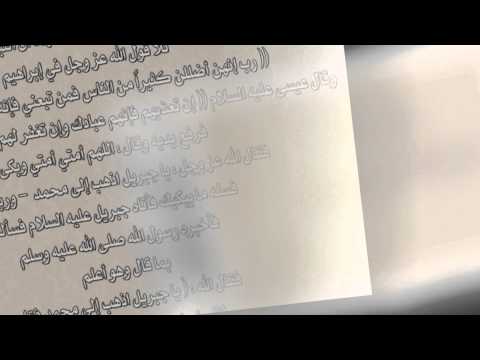 تلا قول الله عز وجل في إبراهيم
(( رب إنهن أضللن كثيراً من الناس فمن تبعني فإنه
وقال عيسى عليه السلام (( إن تعذبهم فإنهم عبادك وإن تغفر لهم
فرفع يديه وقال ، اللهم أمتي أمتي وبكى
فقال الله عز وجل ، يا جبريل اذهب إلى محمد -
فسله ما يبكيك فأتاه جبريل عليه السلام
فأخبره رسول الله صلى الله عليه وسلم
بما قال وهو أعلم
فقال الله ، ( يا جبريل اذهب إلى محمد